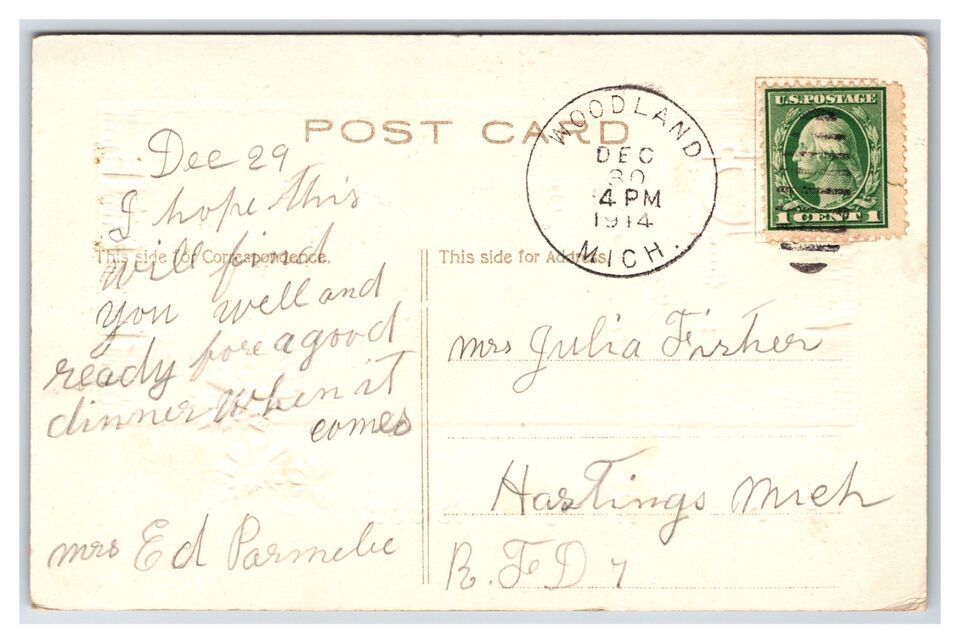 POST CARD
WOODLAND
DEC
30
4 PM
1914
MICH.
U.S. POSTAGE
1 CENT 1
This side for Correspondence.
This side for Address.
Dec 29
I hope this
will find
you well and
ready fore a good
dinner when it
comes
mrs Ed Parmelee
mrs Julia Fisher
Hastings Mich
R.F D 7